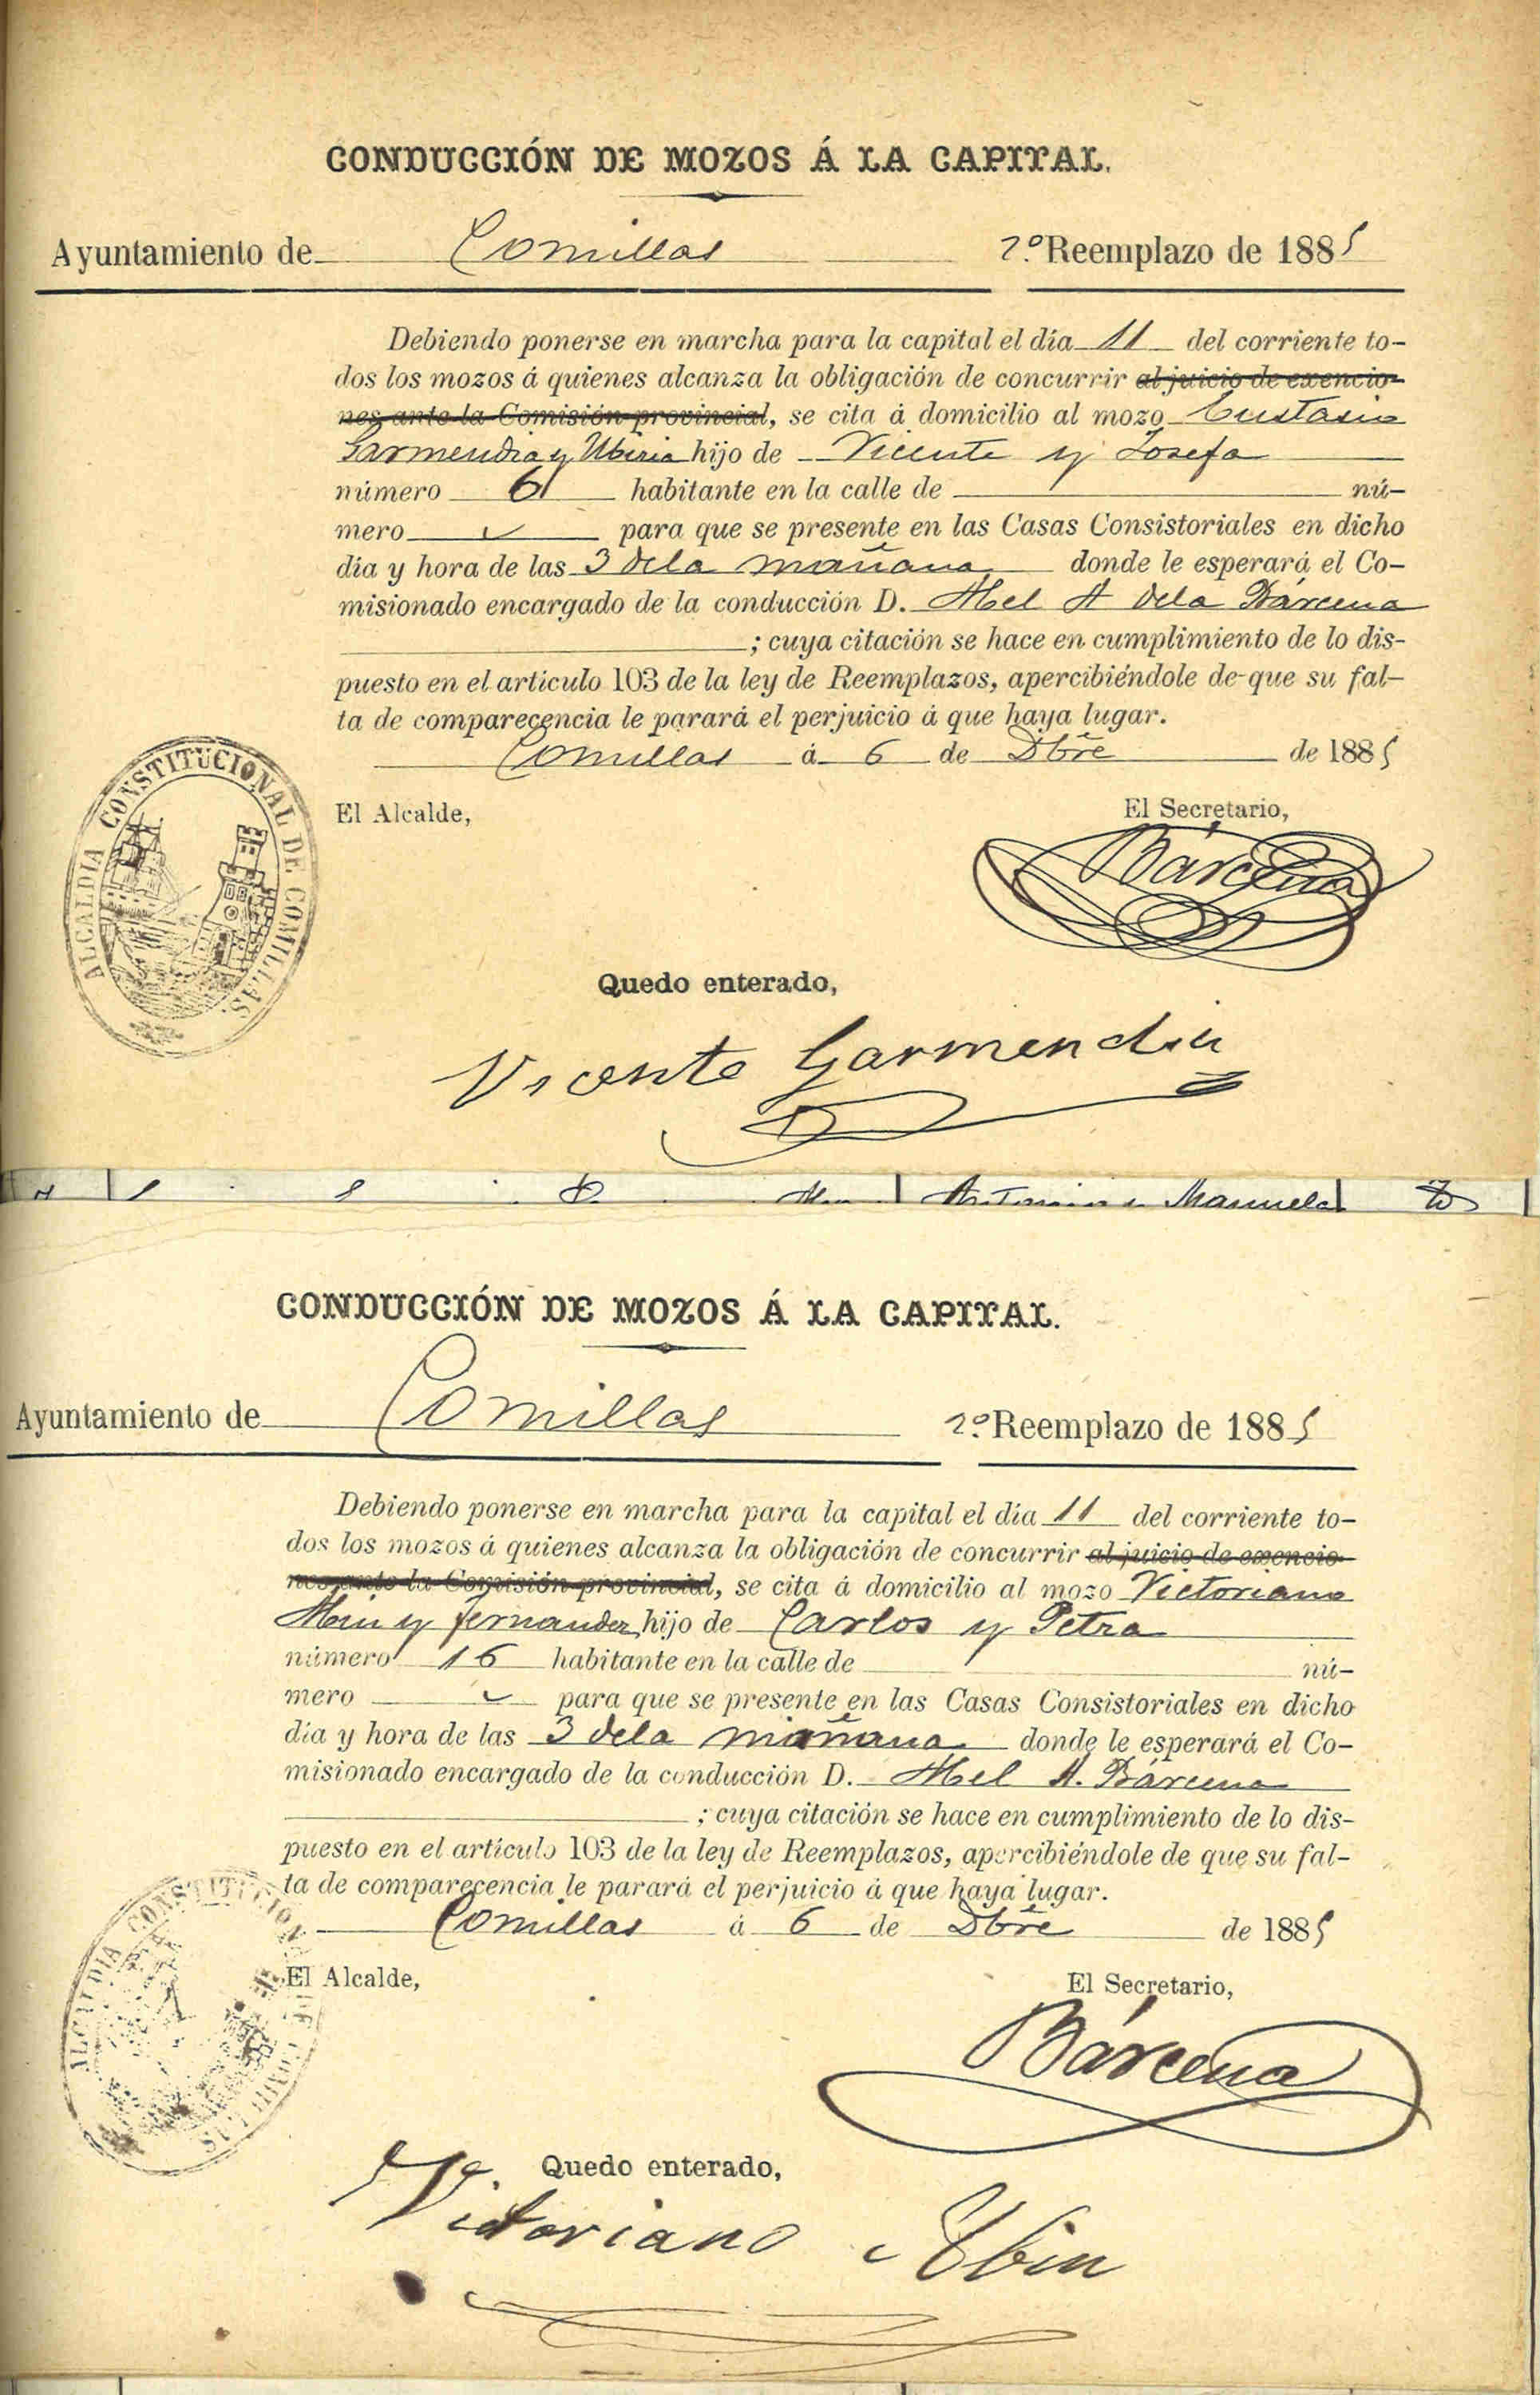 CONDUCCIÓN DE MOZOS Á LA CAPITAL.
Ayuntamiento de Comillas 2º Reemplazo de 1885
Debiendo ponerse en marcha para la capital el día 11 del corriente to-
dos los mozos á quienes alcanza la obligación de concurrir al juicio de exencio-
nes ante la Comisión provincial, se cita á domicilio al mozo Eustasio
Garmendia y Ubiria hijo de Vicente y Josefa
número 6 habitante en la calle de nú-
mero para que se presente en las Casas Consistoriales en dicho
día y hora de las 3 dela mañana donde le esperará el Co-
misionado encargado de la conducción D. Abel A dela Bárcena
; cuya citación se hace en cumplimiento de lo dis-
puesto en el artículo 103 de la ley de Reemplazos, apercibiéndole de que su fal-
ta de comparecencia le parará el perjuicio á que haya lugar.
Comillas á 6 de Dbre de 1885
ALCALDIA CONSTITUCIONAL DE COMILLAS.
El Alcalde, El Secretario,
Bárcena
Quedo enterado,
Vicente Garmendia
Antonio y Manuela
CONDUCCIÓN DE MOZOS Á LA CAPITAL.
Ayuntamiento de Comillas 2º Reemplazo de 1885
Debiendo ponerse en marcha para la capital el día 11 del corriente to-
dos los mozos á quienes alcanza la obligación de concurrir al juicio de exencio-
nes ante la Comisión provincial, se cita á domicilio al mozo Victoriano
Abin y Fernandez hijo de Carlos y Petra
número 16 habitante en la calle de nú-
mero para que se presente en las Casas Consistoriales en dicho
día y hora de las 3 dela mañana donde le esperará el Co-
misionado encargado de la conducción D. Abel A. Bárcena
; cuya citación se hace en cumplimiento de lo dis-
puesto en el artículo 103 de la ley de Reemplazos, apercibiéndole de que su fal-
ta de comparecencia le parará el perjuicio á que haya lugar.
Comillas á 6 de Dbre de 1885
ALCALDIA CONSTITUCIONAL DE COMILLAS
El Alcalde, El Secretario,
Bárcena
Quedo enterado,
Victoriano Abin